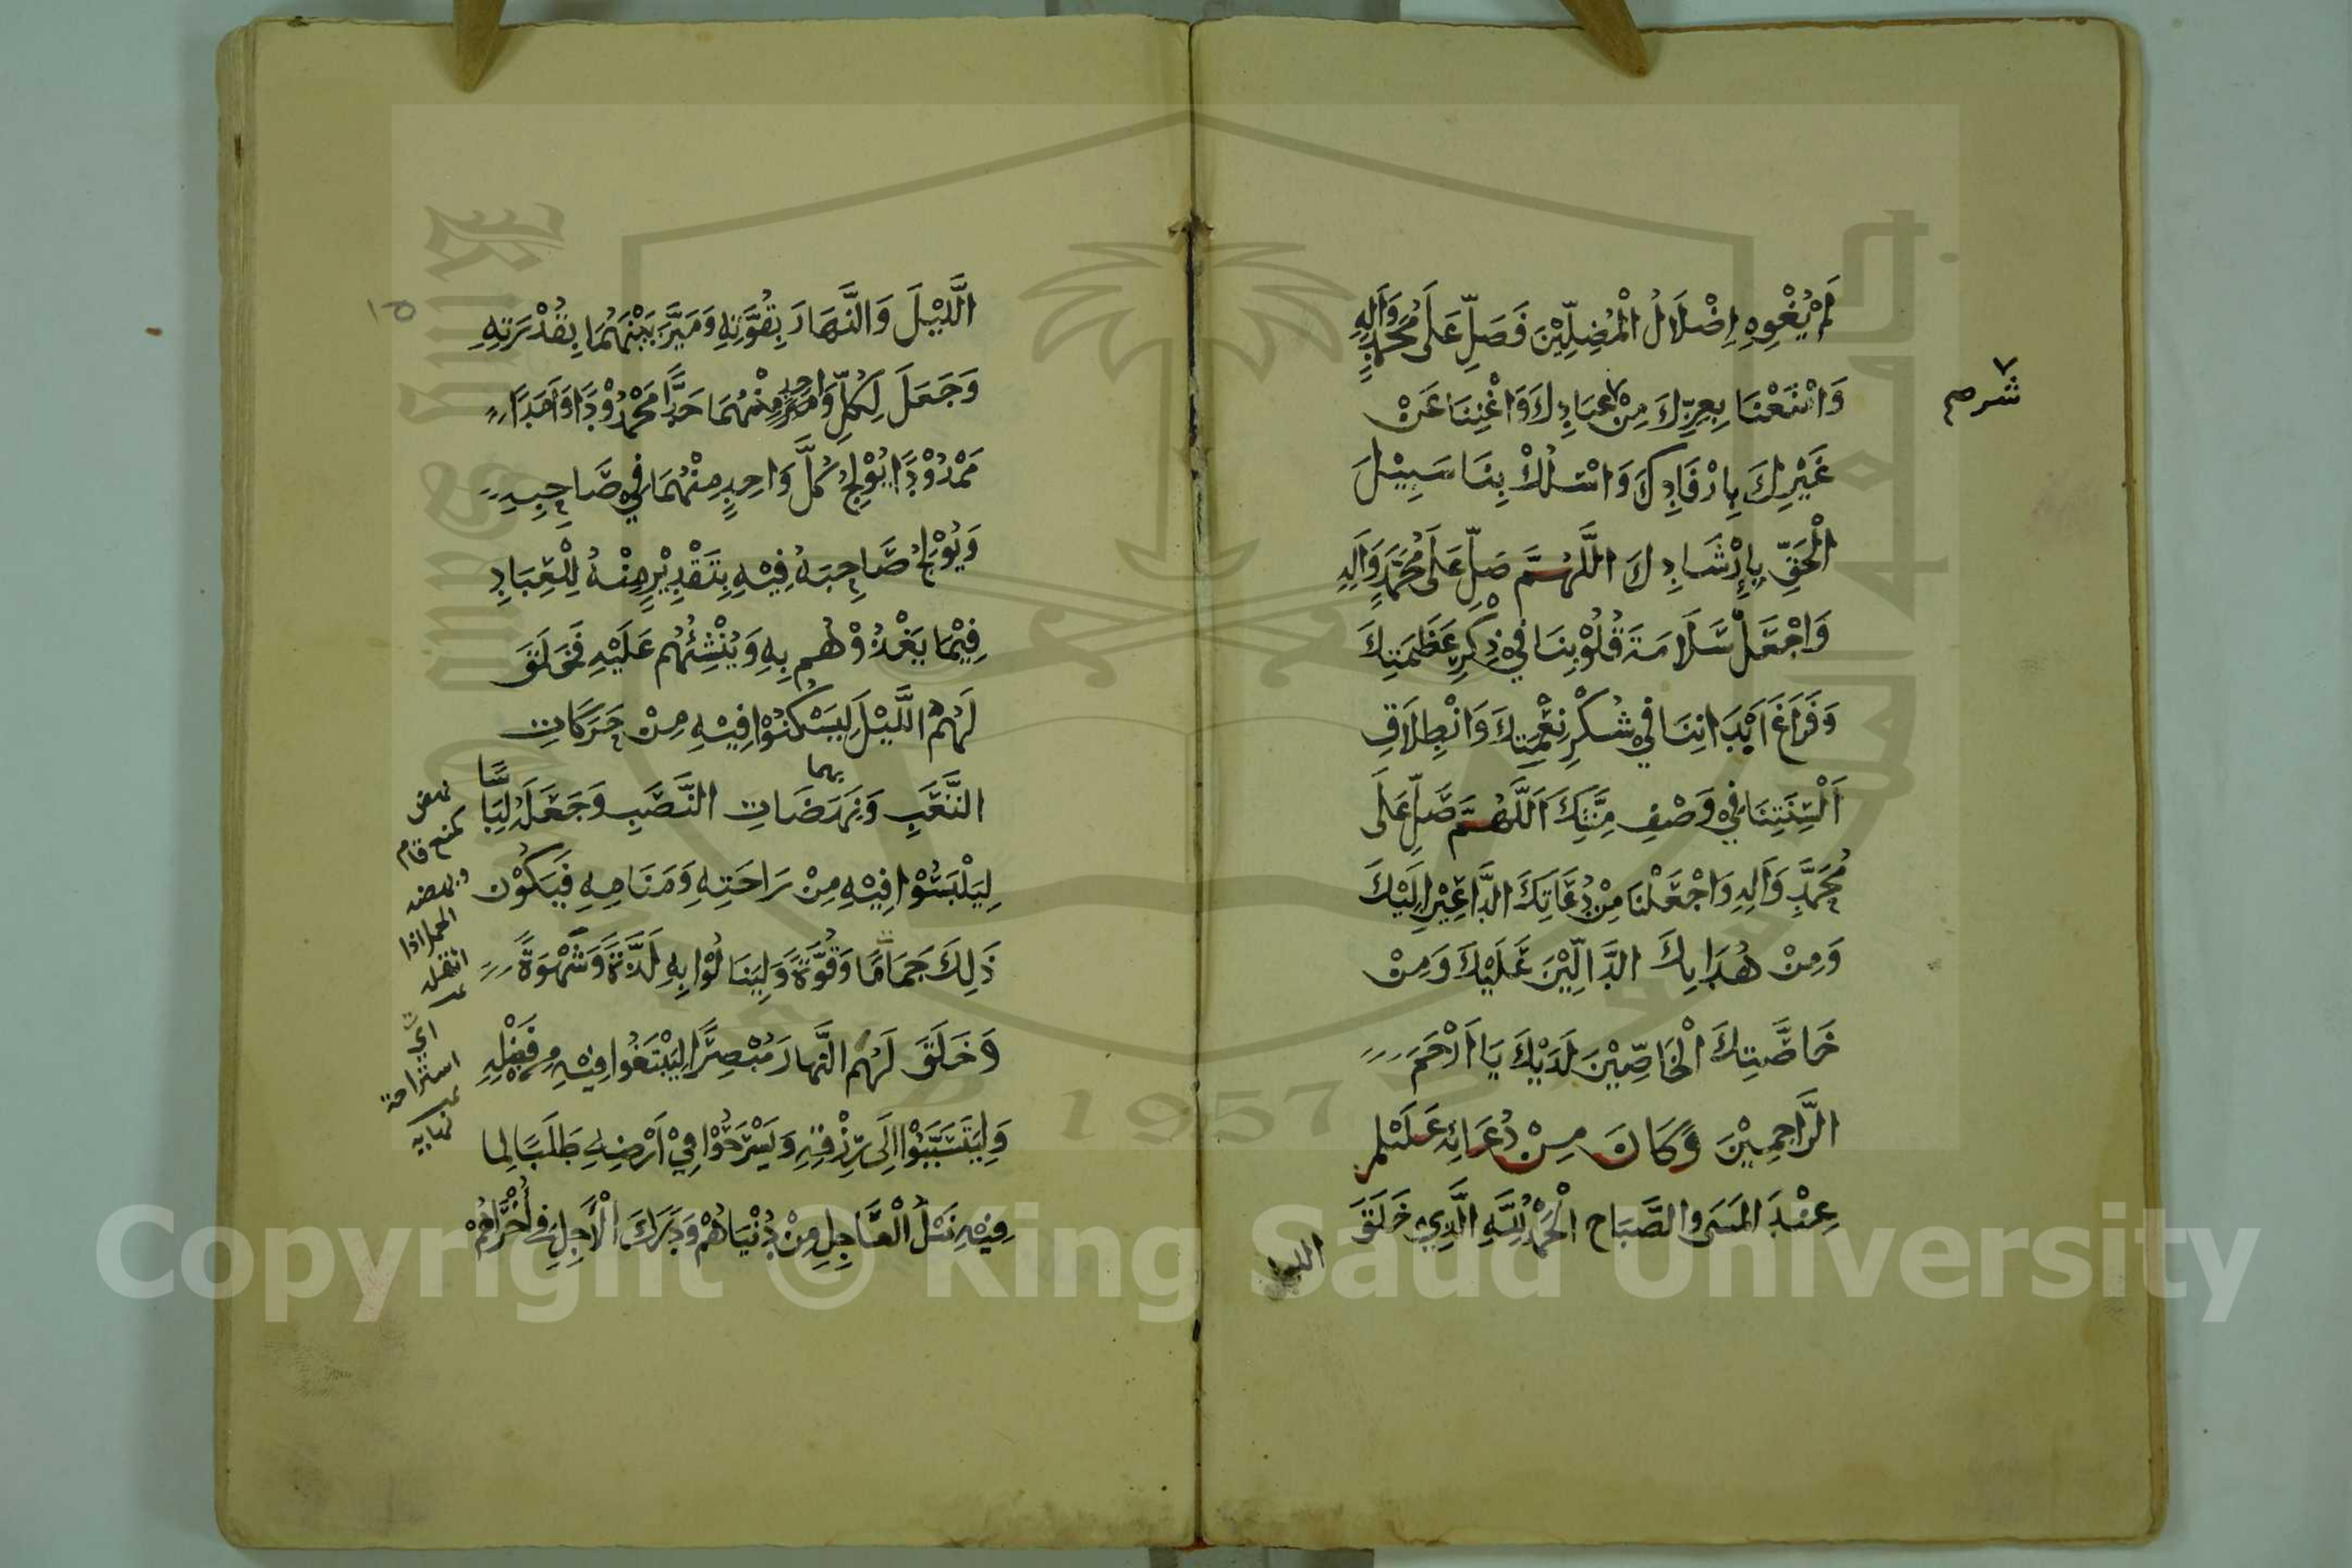 لَمْ يُغْوِهِ اِضْلَالُ الْمُضِلِّيْنَ فَصَلِّ عَلَى مُحَمَّدٍ وَاٰلِهِ
وَامْنَعْنَا بِعِزِّكَ مِنْ عِبَادِكَ وَاغْنِنَا عَنْ
شر صم
غَيْرِكَ بِارْفَادِكَ وَاسْلُكْ بِنَا سَبِيْلَ
الْحَقِّ بِاِرْشَادِكَ اللَّهُمَّ صَلِّ عَلَى مُحَمَّدٍ وَاٰلِهِ
وَاجْعَلْ سَلَامَةَ قُلُوْبِنَا فِيْ ذِكْرِ عَظَمَتِكَ
وَفَرَاغَ اَبْدَانِنَا فِيْ شُكْرِ نِعْمَتِكَ وَانْطِلَاقِ
اَلْسِنَتِنَا فِيْ وَصْفِ مِنَّتِكَ اَللَّهُمَّ صَلِّ عَلَى
مُحَمَّدٍ وَاٰلِهِ وَاجْعَلْنَا مِنْ دُعَاتِكَ الدَّاعِيْنَ اِلَيْكَ
وَمِنْ هُدَاتِكَ الدَّالِّيْنَ عَلَيْكَ وَمِنْ
خَاصَّتِكَ الْخَاصِّيْنَ لَدَيْكَ يَا اَرْحَمَ
الرَّاحِمِيْنَ وَكَانَ مِنْ دُعَائِهِ عَلَيْلم
عِنْدَ المَسَى والصَّبَاح الْحَمْدُ لِلَّهِ الَّذِيْ خَلَقَ
الليل
اللَّيْلَ وَالنَّهَارَ بِقُوَّتِهِ وَمَيَّزَ بَيْنَهُمَا بِقُدْرَتِهِ
وَجَعَلَ لِكُلِّ وَاحِدٍ مِنْهُمَا حَدًّا مَحْدُوْدًا وَاَمَدًا
مَمْدُوْدًا يُوْلِجُ كُلَّ وَاحِدٍ مِنْهُمَا فِيْ صَاحِبِهِ
وَيُوْلِجُ صَاحِبَهُ فِيْهِ بِتَقْدِيْرٍ مِنْهُ لِلْعِبَادِ
فِيْمَا يَغْذُوْهُم بِهِ وَيُنْشِئُهُم عَلَيْهِ فَخَلَقَ
لَهُمُ اللَّيْلَ لِيَسْكُنُوْا فِيْهِ مِنْ حَرَكَاتِ
التَّعَبِ وَنَهَضَاتِ النَّصَبِ وَجَعَلَهُ لِبَاسًا
بهما
لِيَلْبَسُوْا فِيْهِ مِنْ رَاحَتِهِ وَمَنَامِهِ فَيَكُوْن
ذٰلِكَ جَمَامًا وَقُوَّةً وَلِيَنَالُوْا بِهِ لَذَّةً وَشَهْوَةً
وَخَلَقَ لَهُم النَّهارَ مُبْصِرًا لِيَبْتَغُوا فِيْهِ مِنْ فَضْلِهِ
وَلِيَتَسَبَّبُوْا اِلَى رِزْقِهِ وَيَسْرَحُوْا فِيْ اَرْضِهِ طَلَبًا لِما
فِيْهِ نَيْلُ الْعَاجِلِ مِنْ دُنْيَاهُمْ وَدَرَكَ الْاٰجِلِ فِي اُخْرَاهُمْ
نهض
كمنع قام
ونهضه
الحمل اذا
اثقله
اي
استراحة
نهايه
Copyright © King Saud University
1957